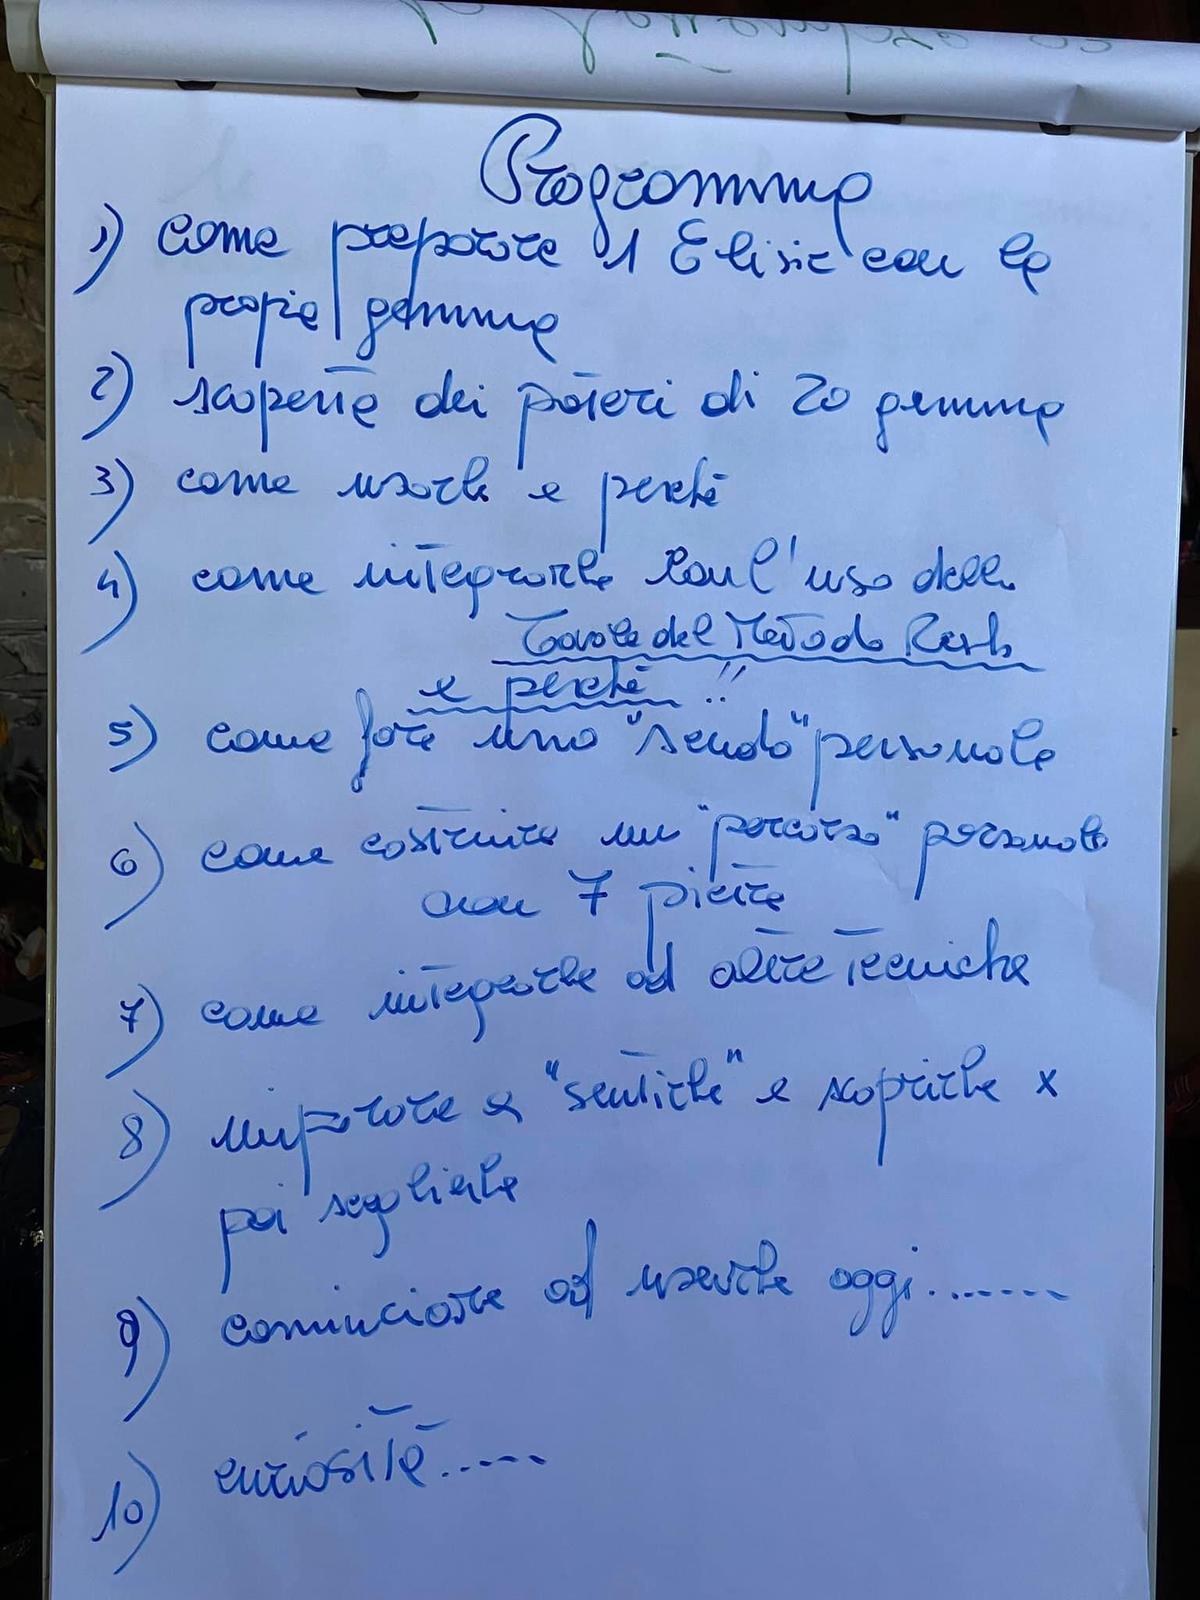 Programma
1) come preparare 1 Elisir con la
propria gemma
2) scoperta dei poteri di 20 gemme
3) come usarle e perché
4) come integrarle con l'uso delle
Tavole del Metodo
e perché !!
5) come fare uno "scudo" personale
6) come costruire un "percorso" personale
con 7 pietre
7) come integrarle ad altre tecniche
8) imparare a "sentirle" e scoprirle x
poi sceglierle
9) cominciare ad usarle oggi.......
10) curiosità.....